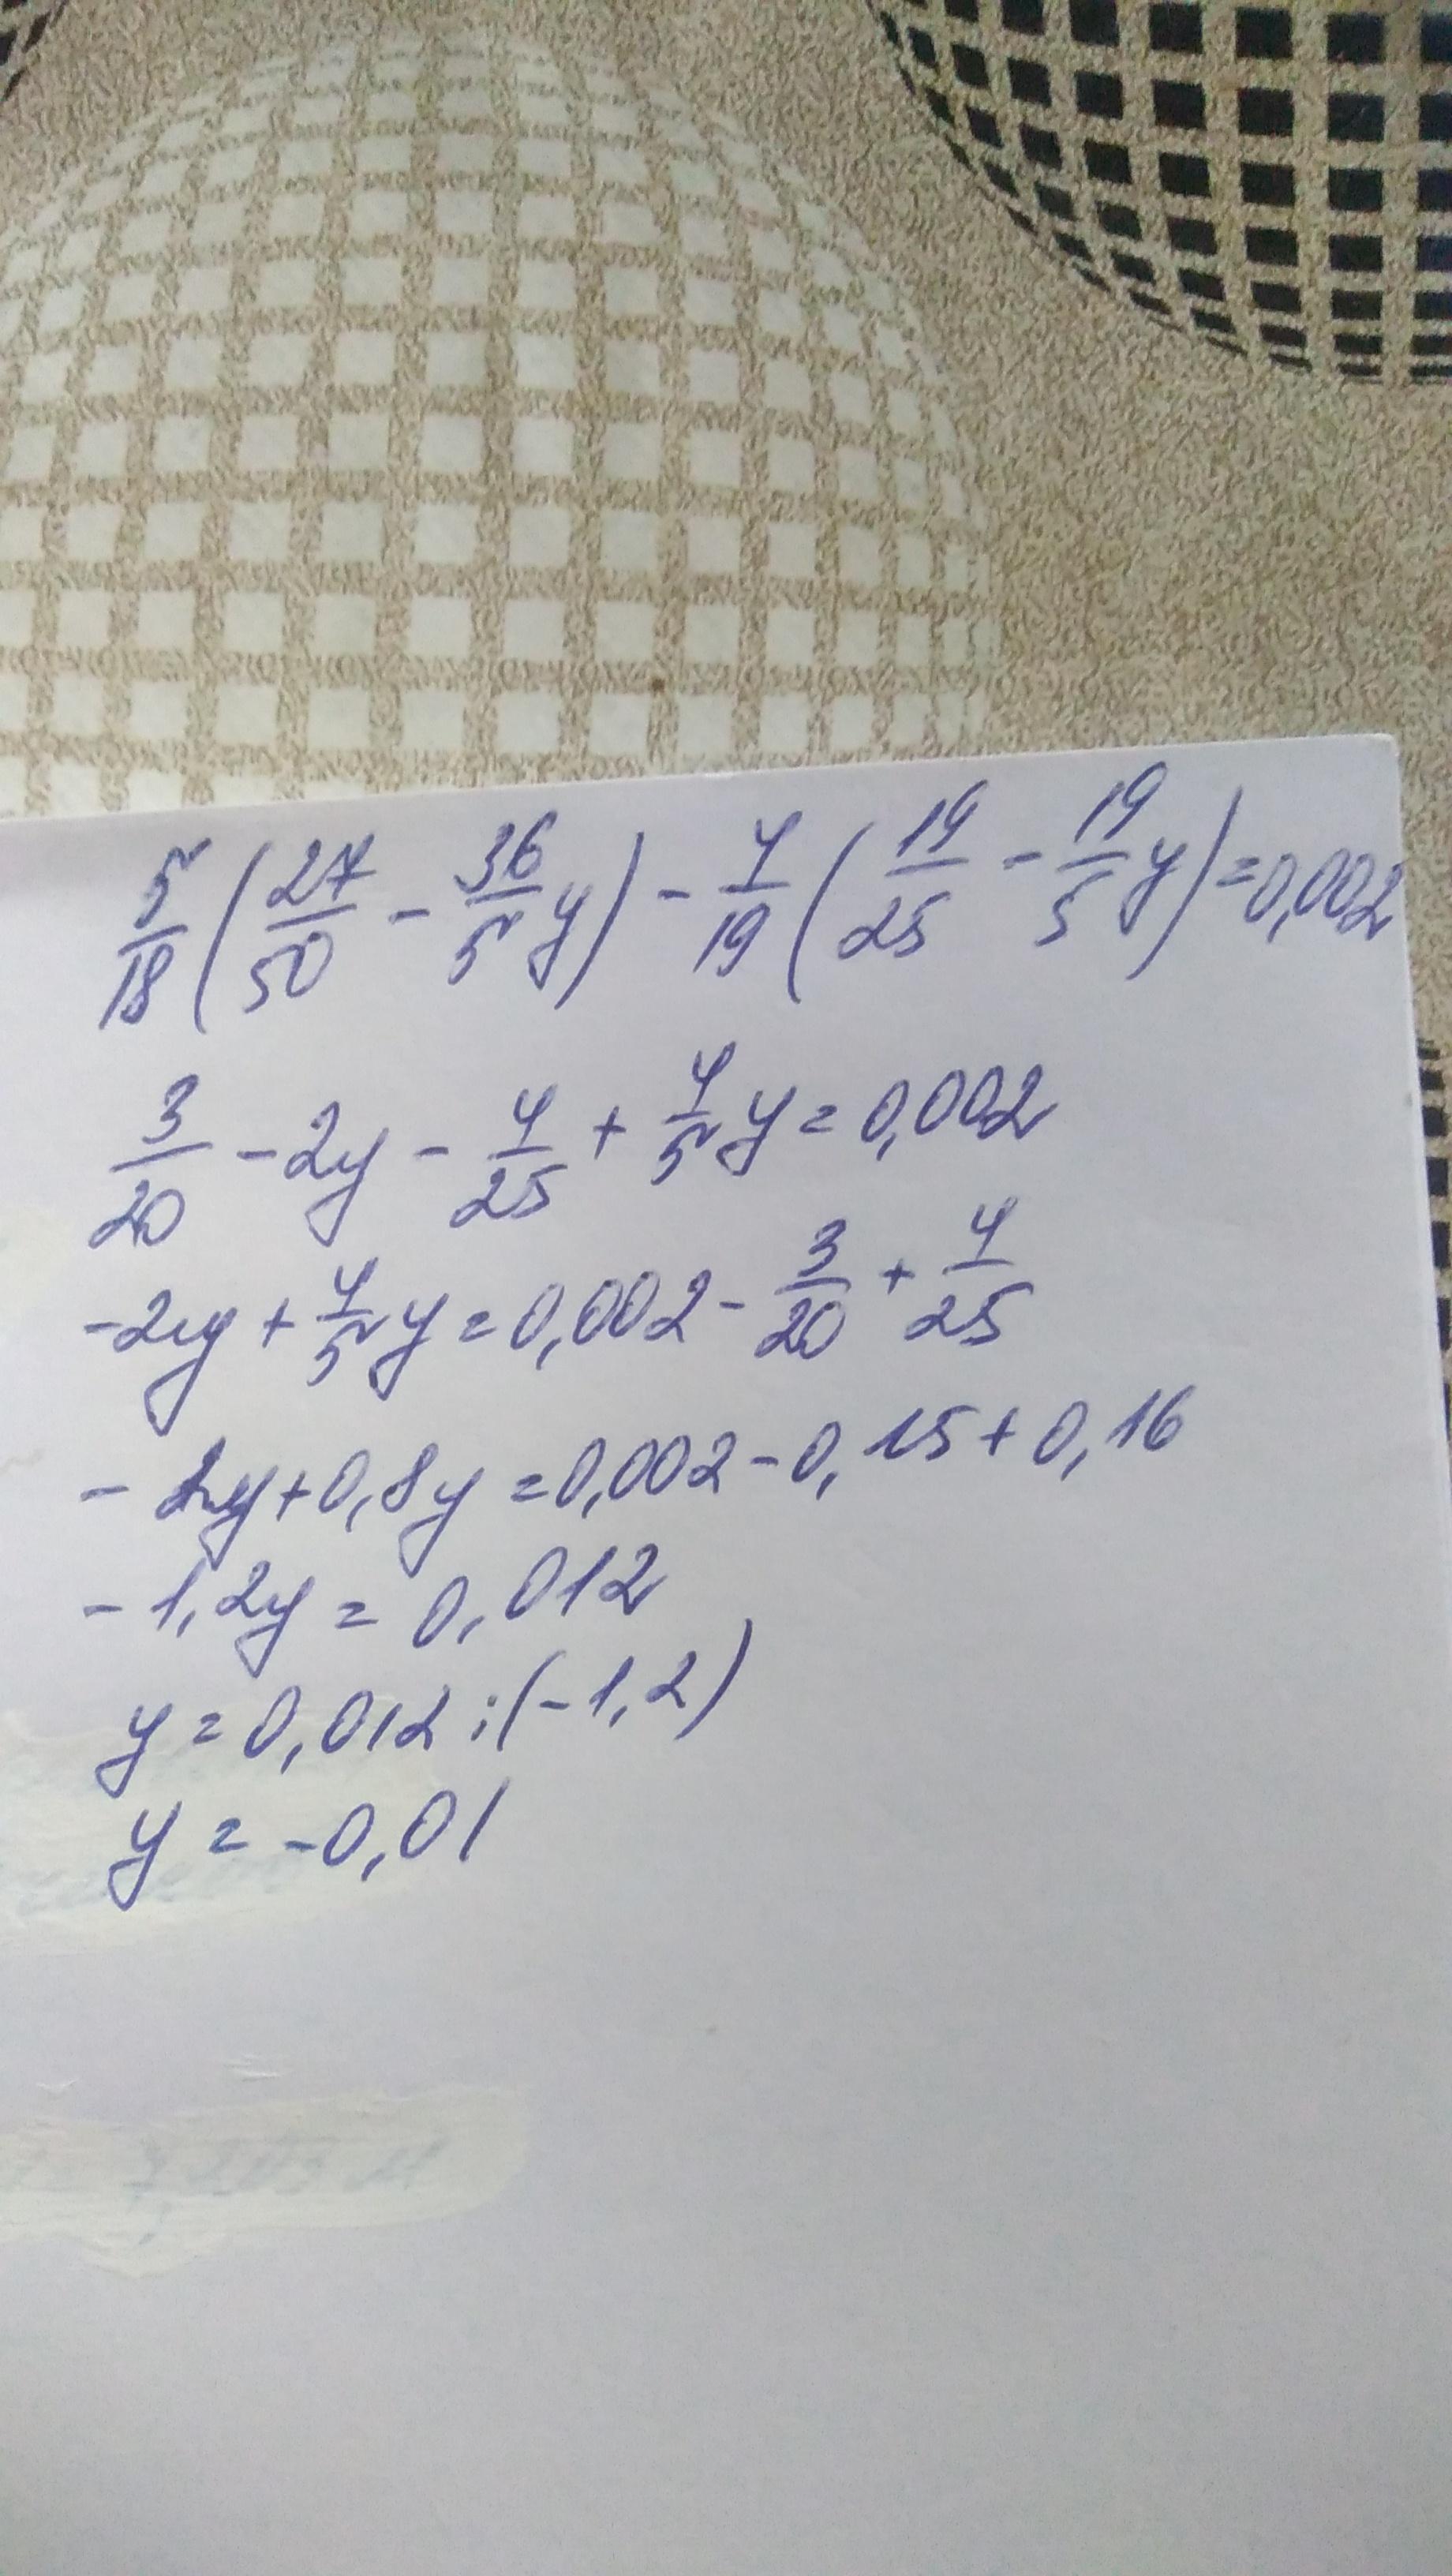 5/18 (27/50 - 36/5 y) - 4/19 (19/25 - 19/5 y) = 0,002
3/20 - 2y - 4/25 + 4/5 y = 0,002
-2y + 4/5 y = 0,002 - 3/20 + 4/25
- 2y + 0,8y = 0,002 - 0,15 + 0,16
- 1,2y = 0,012
y = 0,012 : (-1,2)
y = -0,01